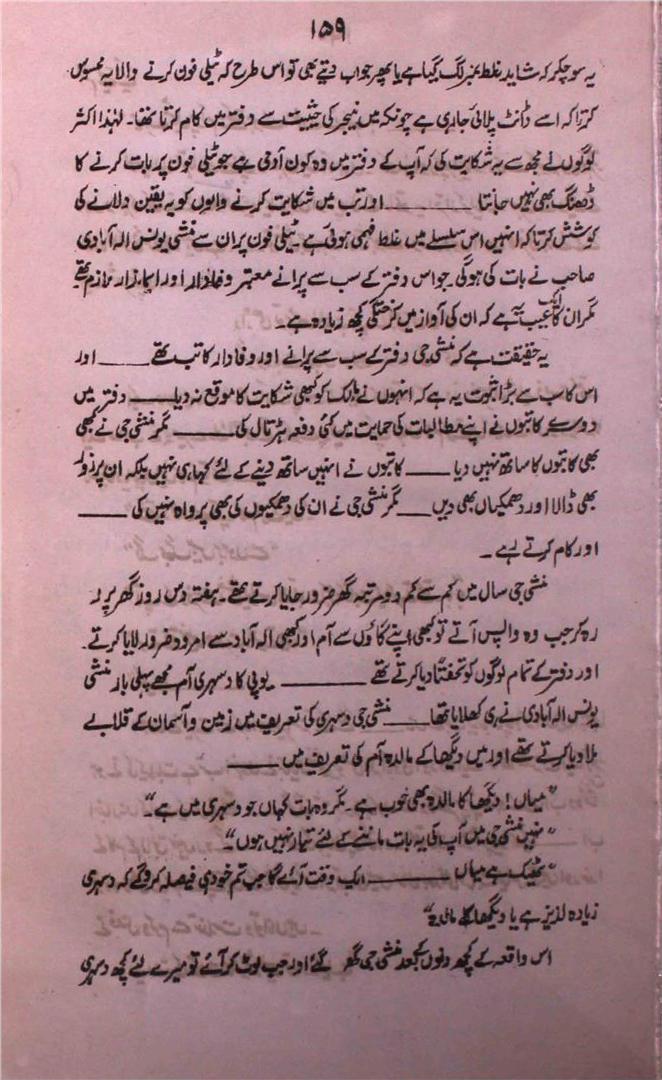 ۱۵۹
یہ سوچکر کہ شاید غلط نمبر لگ گیا ہے یا پھر جواب دیتے بھی تو اس طرح کہ ٹیلی فون کرنے والا یہ محسوس
کرتا کہ اسے ڈانٹ پلائی جا رہی ہے چونکہ میں منیجر کی حیثیت سے دفتر میں کام کرتا تھا۔ لہٰذا اکثر
لوگوں نے مجھ سے یہ شکایت کی کہ آپ کے دفتر میں وہ کون آدمی ہے جو ٹیلی فون پر بات کرنے کا
ڈھنگ بھی نہیں جانتا ــــــــ اور تب میں شکایت کرنے والوں کو یہ یقین دلانے کی
کوشش کرتا کہ انہیں اس سلسلے میں غلط فہمی ہوئی ہے۔ ٹیلی فون پر ان سے منشی یونس الہ آبادی
صاحب نے بات کی ہوگی جو اس دفتر کے سب سے پرانے معتبر وفادار اور ایماندار ملازم تھے
مگر ان کا ایک عیب یہ ہے کہ ان کی آواز میں کرختگی کچھ زیادہ ہے۔
یہ حقیقت ہے کہ منشی جی دفتر کے سب سے پرانے اور وفادار کاتب تھے ــــــــ اور
اس کا سب سے بڑا ثبوت یہ ہے کہ انہوں نے مالک کو کبھی شکایت کا موقع نہ دیا ــــــــ دفتر میں
دوسرے کاتبوں نے اپنے مطالبات کی حمایت میں کئی دفعہ ہڑتال کی ــــــــ مگر منشی جی نے کبھی
بھی کاتبوں کا ساتھ نہیں دیا ــــــــ کاتبوں نے انہیں ساتھ دینے کے لئے کہا ہی نہیں بلکہ ان پر زور
بھی ڈالا اور دھمکیاں بھی دیں ــــــــ مگر منشی جی نے ان کی دھمکیوں کی بھی پرواہ نہیں کی ــــــــ
اور کام کرتے رہے ۔
منشی جی سال میں کم سے کم دو مرتبہ گھر ضرور جایا کرتے تھے۔ ہفتہ دس روز گھر پر
رہ کر جب وہ واپس آتے تو کبھی اپنے گاؤں سے آم اور کبھی الہ آباد سے امرود ضرور لایا کرتے۔
اور دفتر کے تمام لوگوں کو تحفتاً دیا کرتے تھے ــــــــ یوپی کا دسہری آم مجھے پہلی بار منشی
یونس الہ آبادی نے ہی کھلایا تھا ــــــــ منشی جی دسہری کی تعریف میں زمین و آسمان کے قلابے
ملا دیا کرتے تھے اور میں دیگھا کے مالدہ آم کی تعریف میں ــــــــ
"میاں! دیگھا کا مالدہ بھی خوب ہے۔ مگر وہ بات کہاں جو دسہری میں ہے"۔
"نہیں منشی جی میں آپ کی یہ بات ماننے کے لئے تیار نہیں ہوں"۔
"ٹھیک ہے میاں ــــــــ ایک وقت آئے گا جب تم خود ہی فیصلہ کرو گے کہ دسہری
زیادہ لذیز ہے یا دیگھا کا مالدہ"
اس واقعہ کے کچھ دنوں کے بعد منشی جی گھر گئے اور جب لوٹ کر آئے تو میرے لئے کچھ دسہری